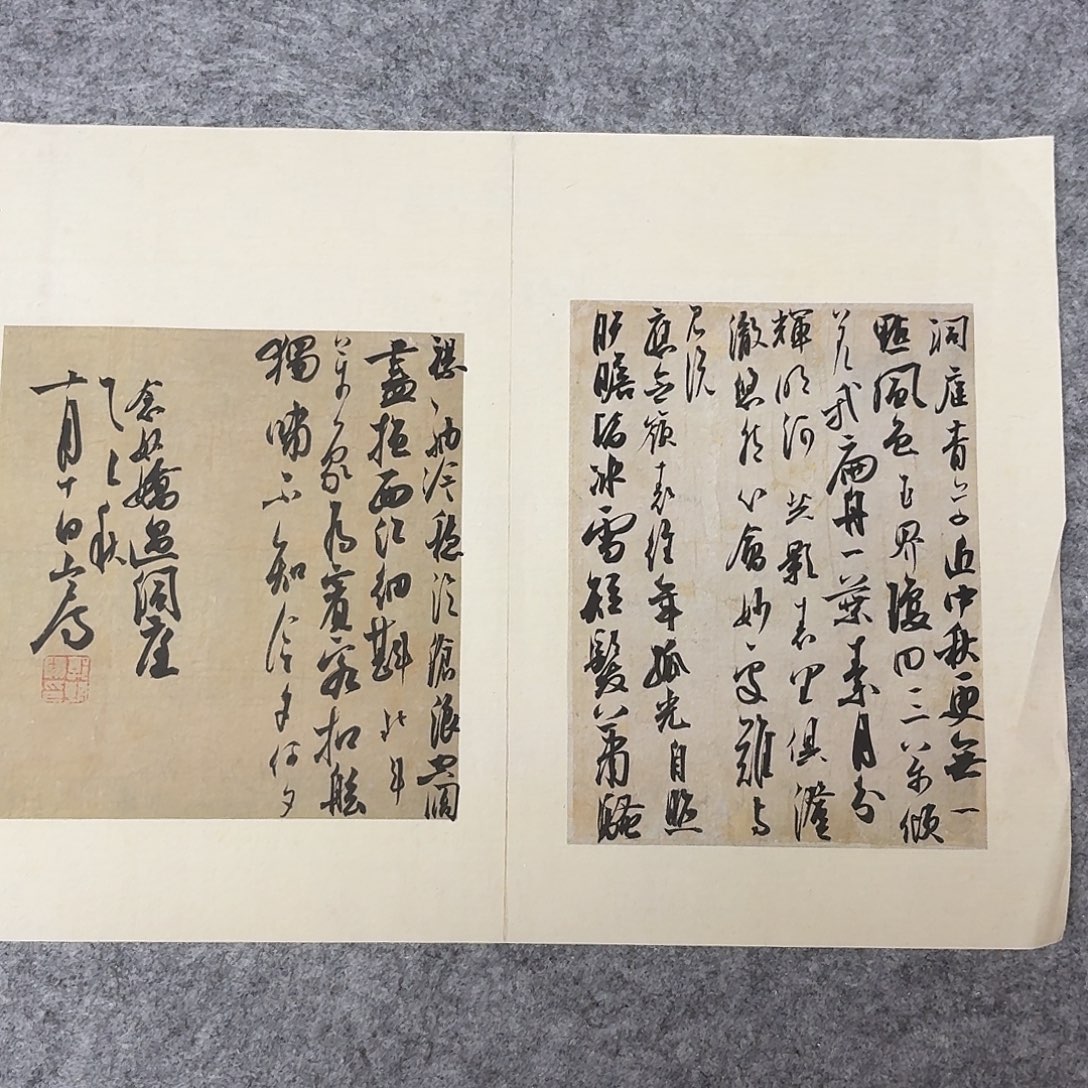 洞庭青草近中秋更無一
點風色玉界瓊田三萬傾
著我扁舟一葉素月分
輝明河共影表里俱澄
澈悠然心會妙處難與
君說
應念嶺表經年孤光自照
肝膽皆冰雪短髮蕭騷
襟袖冷穩泛滄浪空闊
盡挹西江細斟北斗
萬象為賓客扣舷
獨嘯不知今夕何夕
念奴嬌過洞庭
秋
十月十日